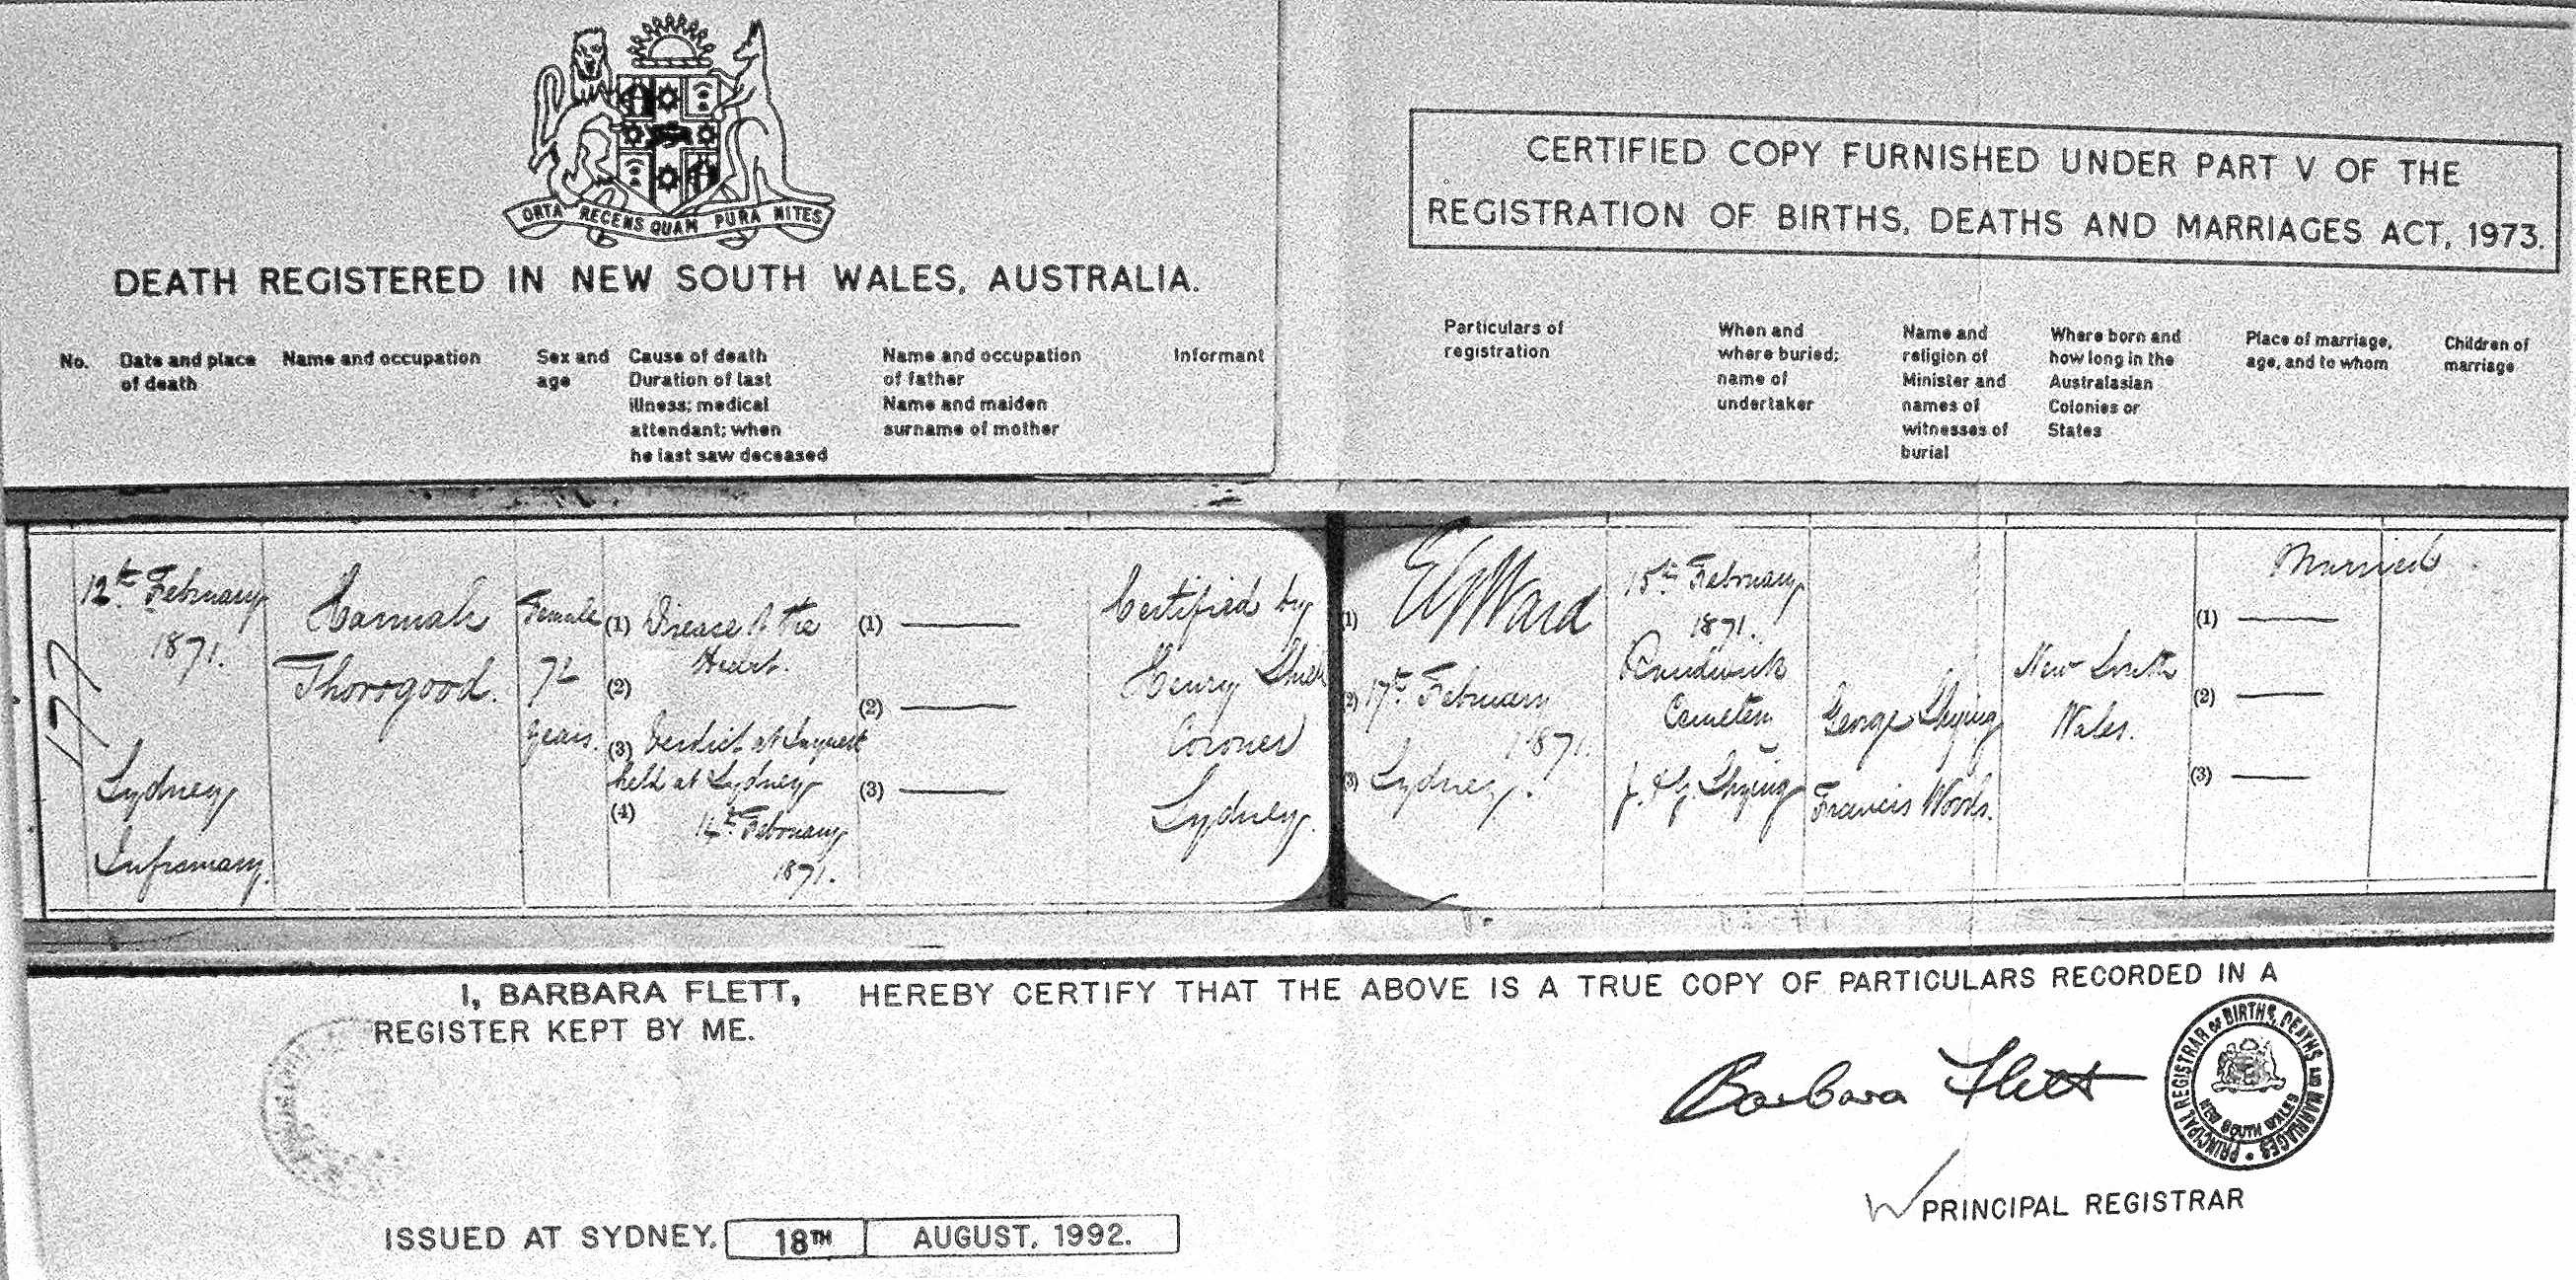 ORTA RECENS QUAM PURA NITES
DEATH REGISTERED IN NEW SOUTH WALES, AUSTRALIA.
CERTIFIED COPY FURNISHED UNDER PART V OF THE
REGISTRATION OF BIRTHS, DEATHS AND MARRIAGES ACT, 1973.
No.
Date and place
of death
Name and occupation
Sex and
age
Cause of death
Duration of last
illness; medical
attendant; when
he last saw deceased
Name and occupation
of father
Name and maiden
surname of mother
Informant
Particulars of
registration
When and
where buried;
name of
undertaker
Name and
religion of
Minister and
names of
witnesses of
burial
Where born and
how long in the
Australasian
Colonies or
States
Place of marriage,
age, and to whom
Children of
marriage
177
12th February
1871.
Sydney
Infirmary.
Hannah
Thorogood.
Female
years.
(1) Disease of the
Heart.
(2)
(3) Verdict at Inquest
held at Sydney
(4) 14th February
1871.
(1)
(2)
(3)
Certified by
Henry Shiell
Coroner
Sydney.
(1) Ward
(2) 17th February
1871.
(3) Sydney.
15th February
1871.
Randwick
Cemetery
J. & G. Shying
George Shying
Francis Woods.
New South
Wales.
Married.
(1)
(2)
(3)
I, BARBARA FLETT, HEREBY CERTIFY THAT THE ABOVE IS A TRUE COPY OF PARTICULARS RECORDED IN A
REGISTER KEPT BY ME.
Barbara Flett
PRINCIPAL REGISTRAR OF BIRTHS, DEATHS AND MARRIAGES
NEW SOUTH WALES
PRINCIPAL REGISTRAR
ISSUED AT SYDNEY, 18TH AUGUST, 1992.